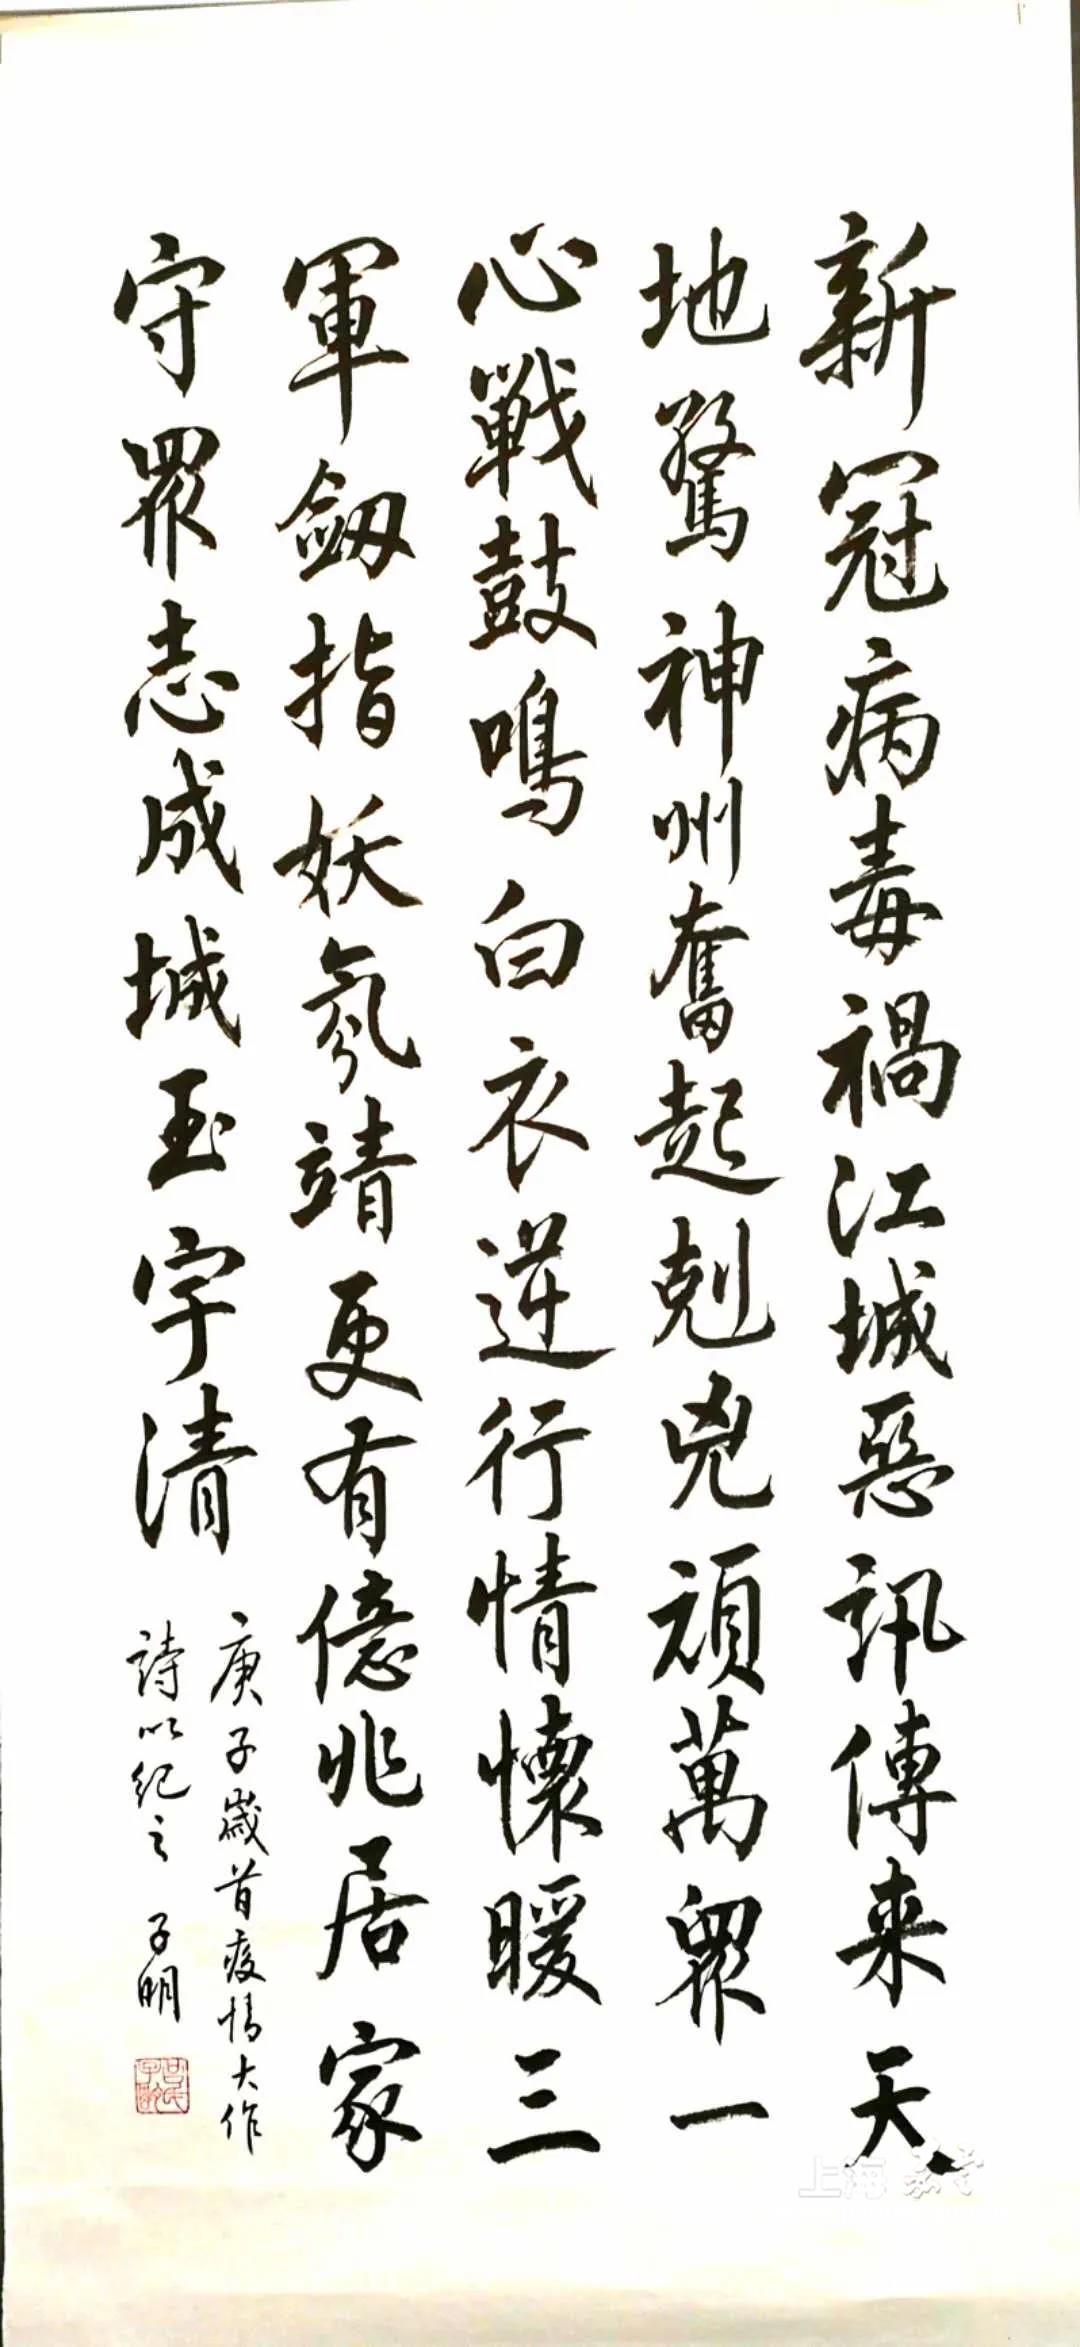 新冠病毒禍江城惡訊傳来天
地驚神州奮起剋兇頑萬眾一
心戰鼓鳴白衣逆行情懷暖三
軍劔指妖氛靖更有億兆居家
守眾志成城玉宇清
庚子歲首疫情大作
詩以紀之 子明
上海